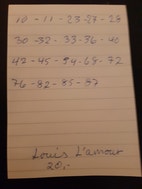 10 - 11 - 23 - 27 - 28
30 - 32 - 33 - 36 - 40
42 - 45 - 54 - 68 - 72
76 - 82 - 85 - 87
Louis L'amour
20,-